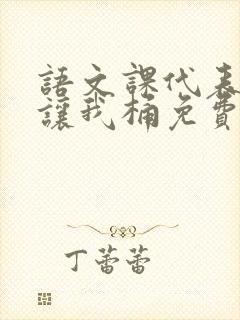 語文課代表
讓我桶免費
丁蕾蕾